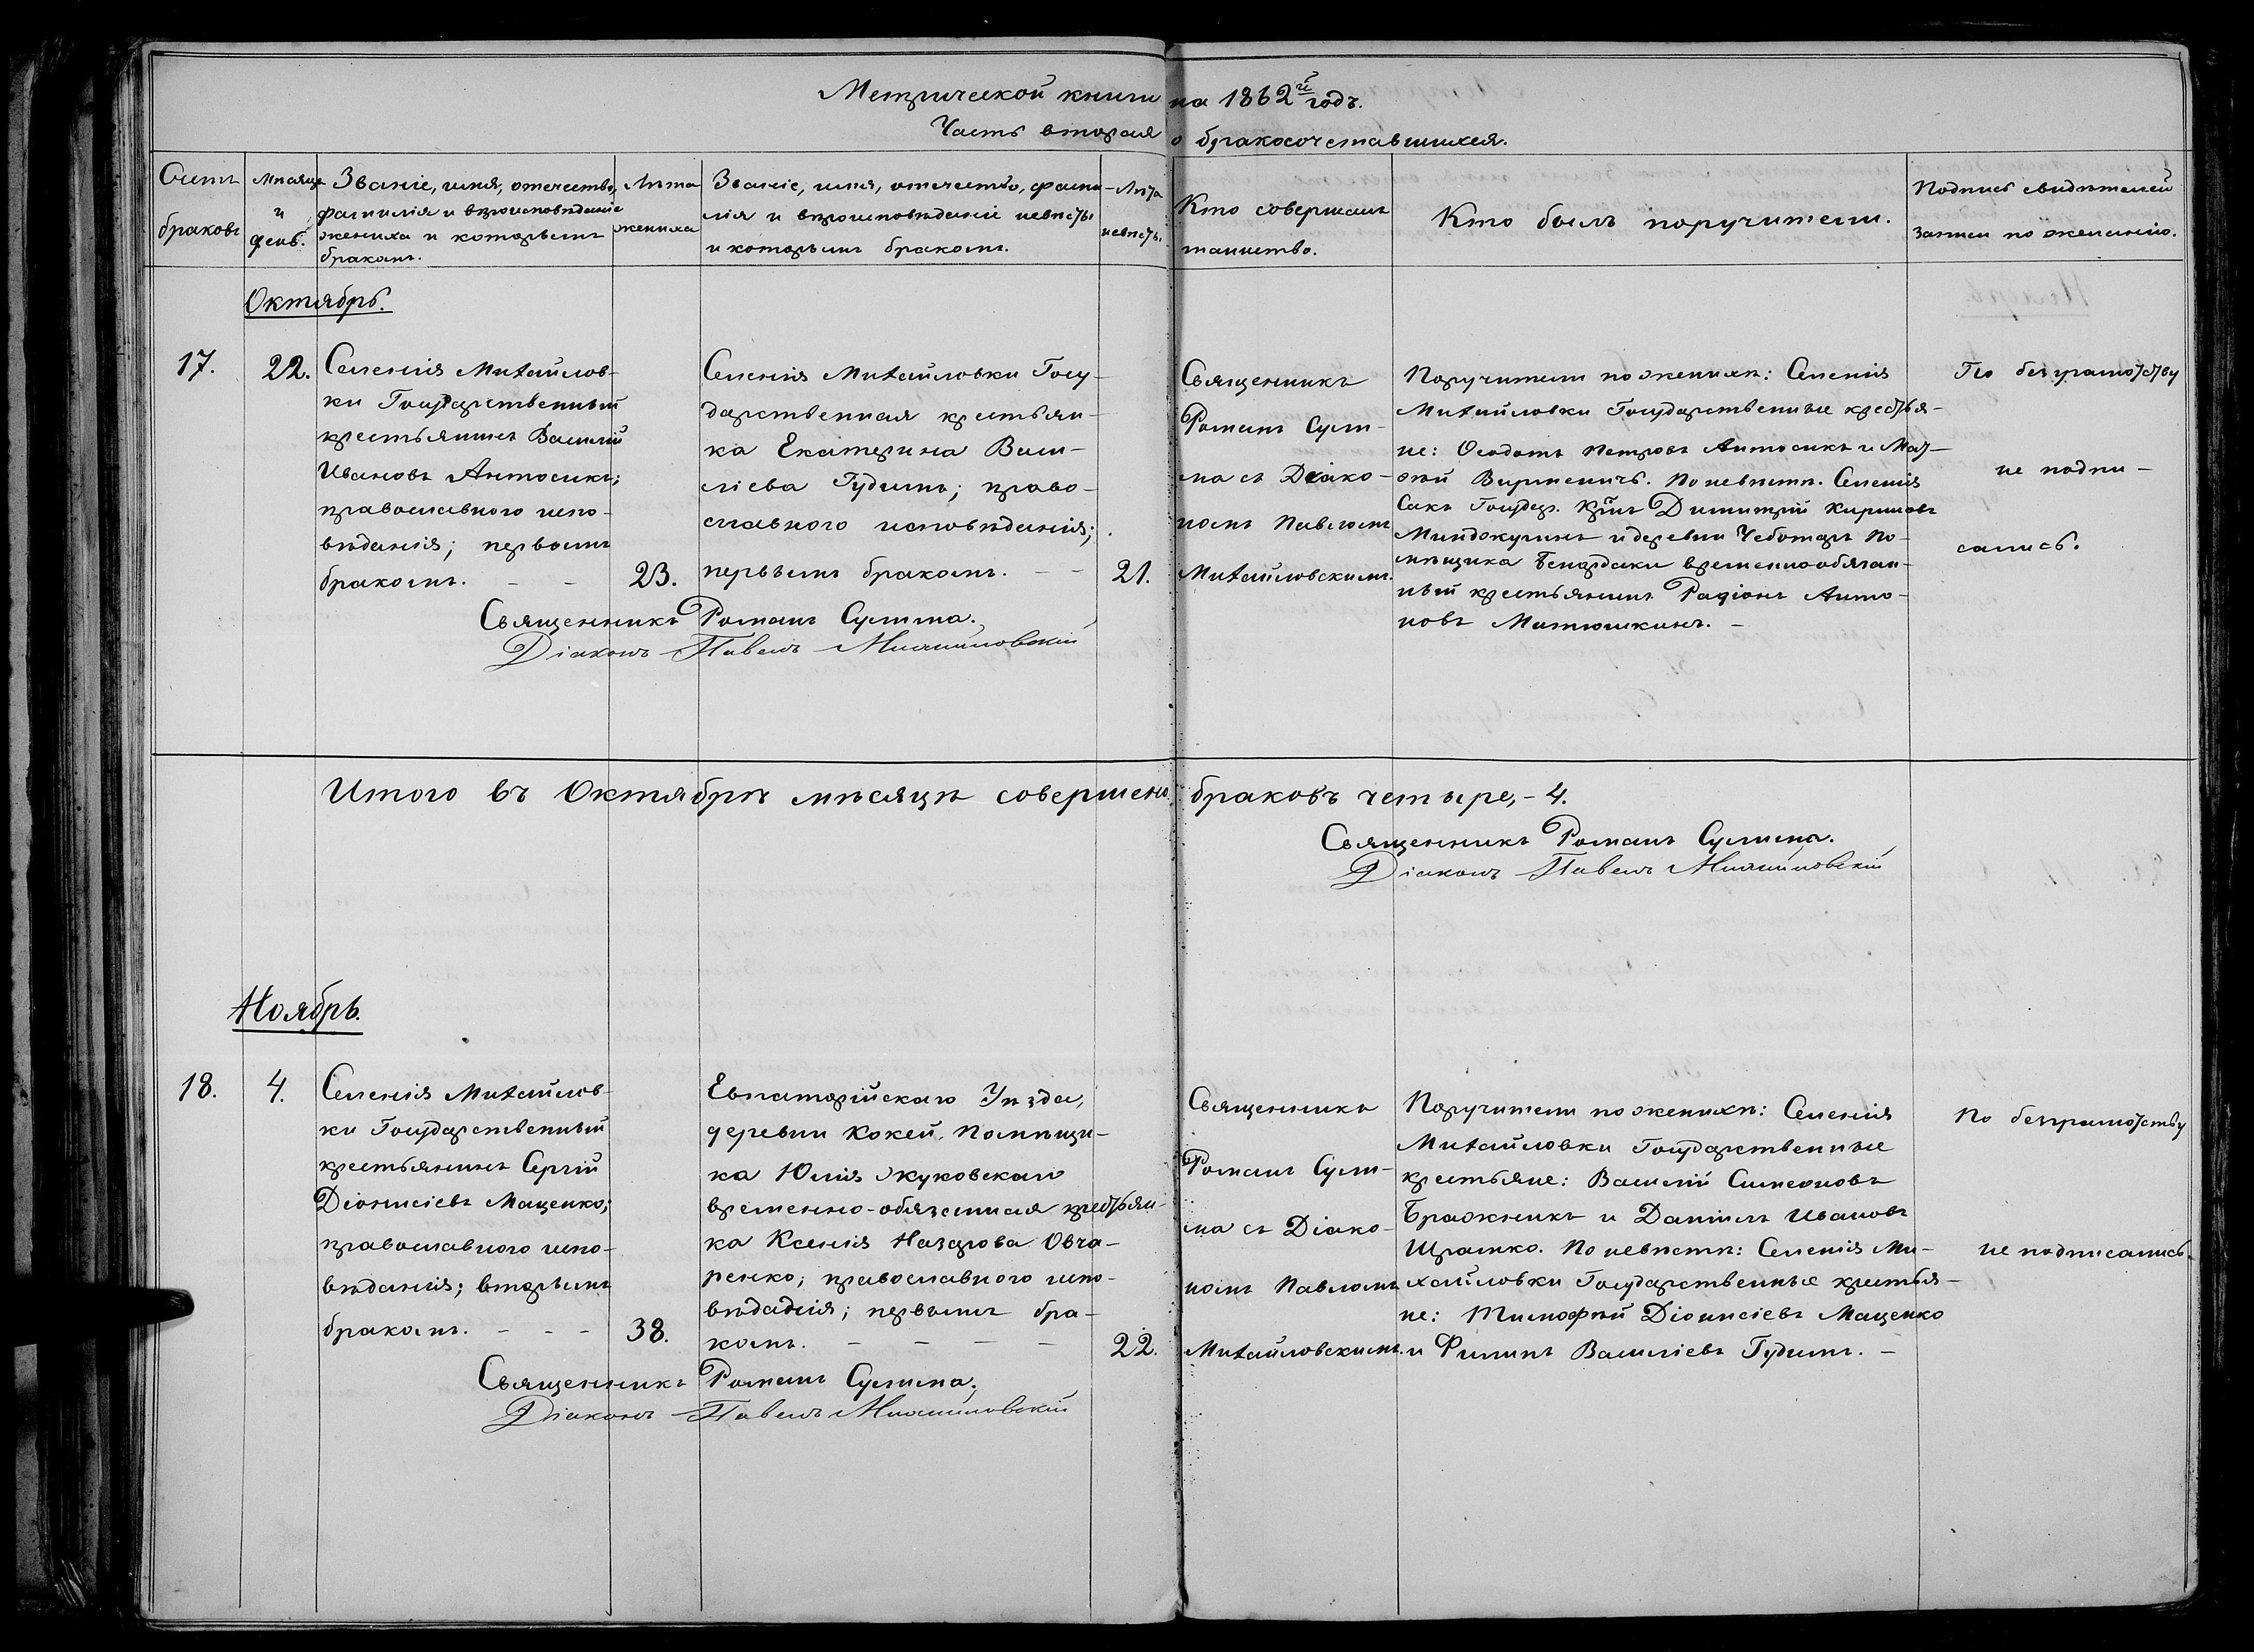 Метрической книги на 1862й годъ.
Часть вторая о бракосочетавшихся.
Счетъ
браковъ
Мѣсяцъ
и
день.
Званіе, имя, отечество,
фамилія и вѣроисповѣданіе
жениха и которымъ
бракомъ.
Лѣта
жениха
Званіе, имя, отечество, фами-
лія и вѣроисповѣданіе невѣсты
и которымъ бракомъ.
Лѣта
невѣсты.
Кто совершалъ
таинство.
Кто былъ поручители.
Подпись свидѣтелей
записи по желанію.
Октябрь.
17.
22.
Селенія Михайлов-
ки Государственный
крестьянинъ Василій
Ивановъ Антосикъ;
православного испо-
вѣданія; первымъ
бракомъ. - -
23.
Селенія Михайловки Госу-
дарственная крестьян-
ка Екатерина Васи-
ліева Гудимъ; право-
славного исповѣданія;
первымъ бракомъ. - -
21.
Священникъ
Романъ Сули-
ма съ Діако-
номъ Павломъ
Михайловскимъ.
Поручители по женихѣ: Селенія
Михайловки Государственные крестья-
не: Ѳеодотъ Петровъ Антосикъ и Мат-
ѳей Вирменичъ. По невѣстѣ. Селенія
Сакъ Государ. Крнъ Димитрій Кириловъ
и деревни Чеботаръ По-
мѣщика временнообязан-
ный крестьянинъ Радіонъ Анто-
новъ Матюшкинъ. -
По безграмотству
не подпи-
сались.
Священникъ Романъ Сулима.
Діаконъ Павелъ Михайловскій
Итого въ Октябрѣ мѣсяцѣ совершено браковъ четыре, - 4.
Священникъ Романъ Сулима.
Діаконъ Павелъ Михайловскій
Ноябрь.
18.
4.
Селенія Михайлов-
ки Государственный
крестьянинъ Сергій
Діонисіевъ Маценко;
православного испо-
вѣданія; вторымъ
бракомъ. - - -
38.
Евпаторійскаго Уѣзда,
деревни Кокей, Помѣщи-
ка Юлія Жуковскаго
временно-обязанная крестьян-
ка Ксенія Назарова Овча-
ренко; православного испо-
вѣданія; первымъ бра-
комъ. - - - -
22.
Священникъ
Романъ Сули-
ма съ Діако-
номъ Павломъ
Михайловскимъ.
Поручители по женихѣ: Селенія
Михайловки Государственные
крестьяне: Василій Симеоновъ
Бражникъ и Даніилъ Ивановъ
Щрамко. По невѣстѣ: Селенія Ми-
хайловки Государственные крестья-
не: Тимофѣй Діонисіевъ Маценко
и Филипъ Василіевъ Гудимъ. -
По безграмотству
не подписались.
Священникъ Романъ Сулима.
Діаконъ Павелъ Михайловскій